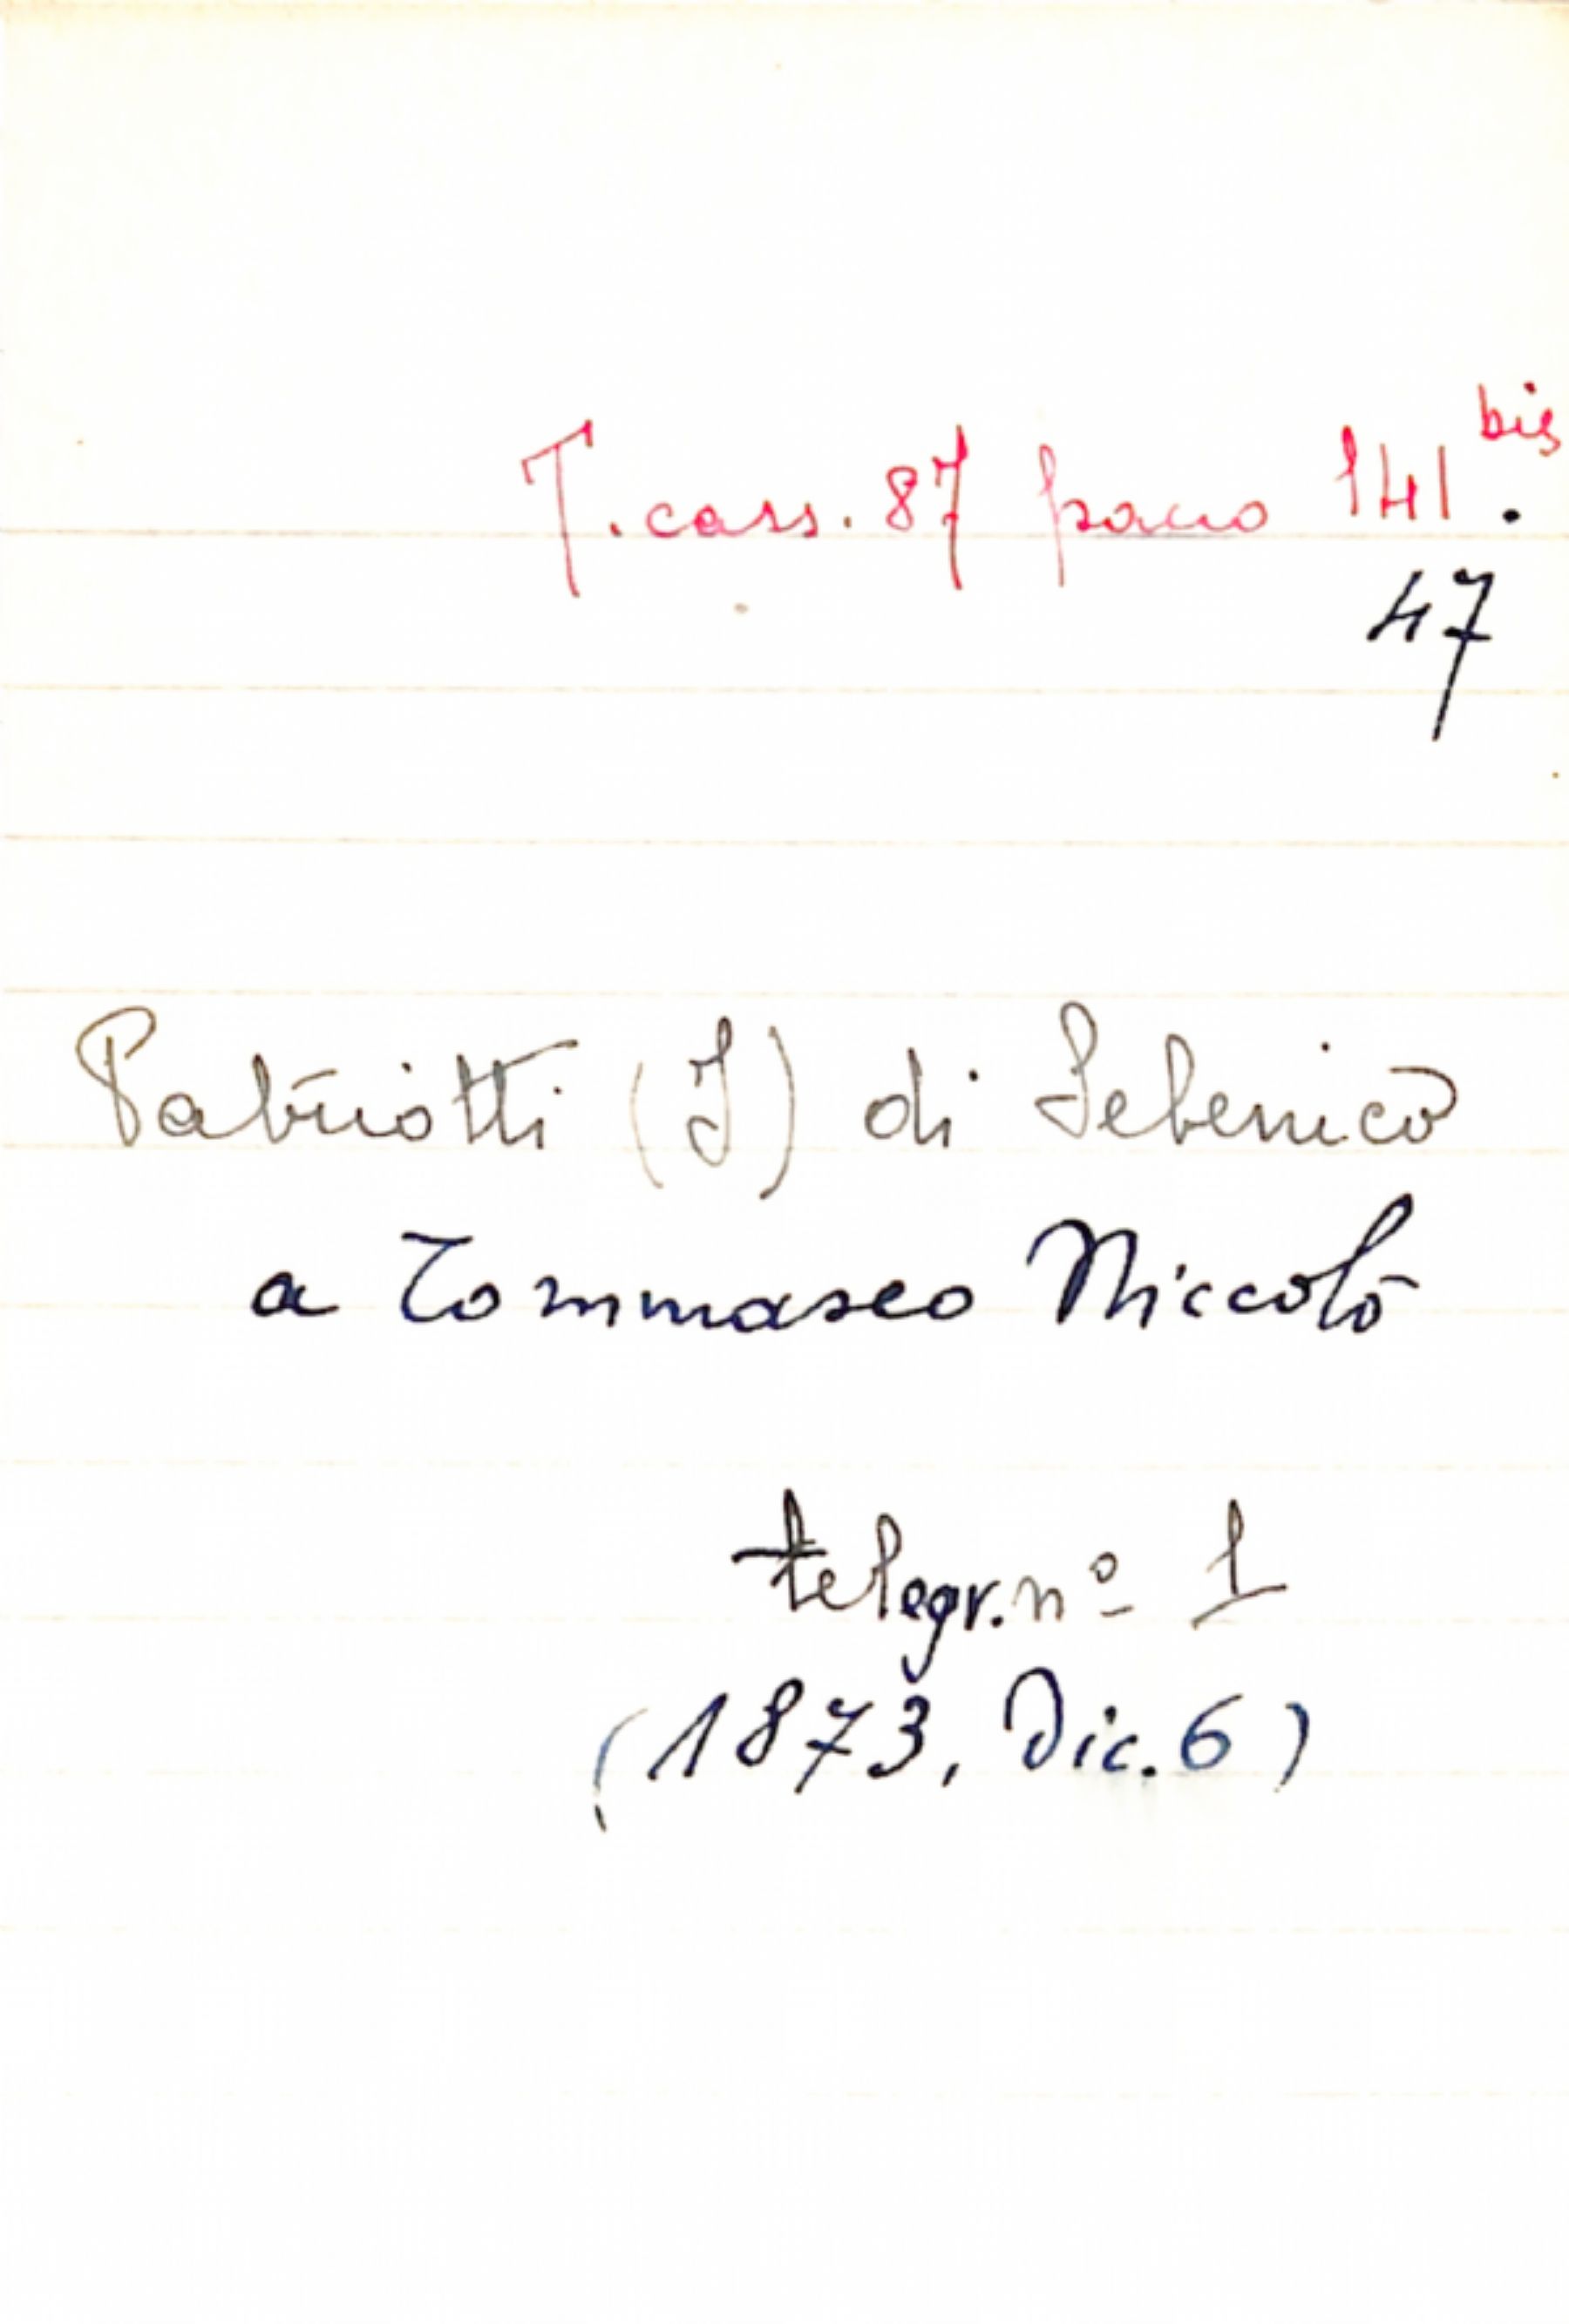 T. cass. 87 pacco 141 bis.
47
Patriotti (I) di Sebenico
a Tommaseo Niccolò
telegr. nº 1
(1873, Dic. 6)